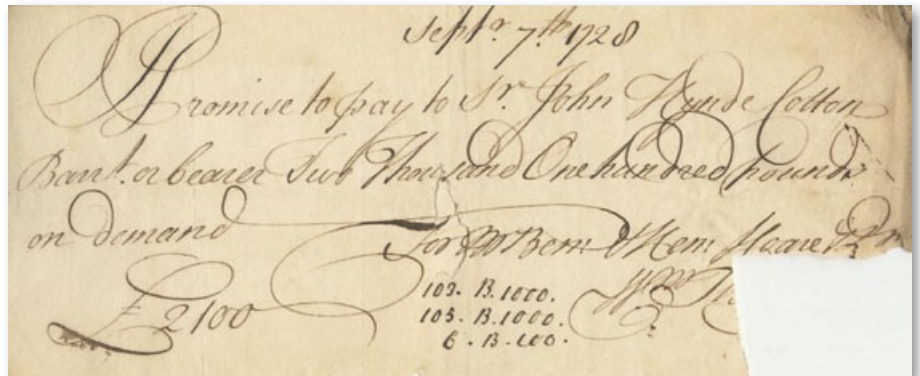 Septr. 7th. 1728
I Promise to pay to Sr. John Hynde Cotton
Bart. or bearer Two Thousand One hundred pounds
on demand
For Mr Benn & Hen Hoare &
£ 2100
103. B. 1000.
105. B. 1000.
6. B. 100.